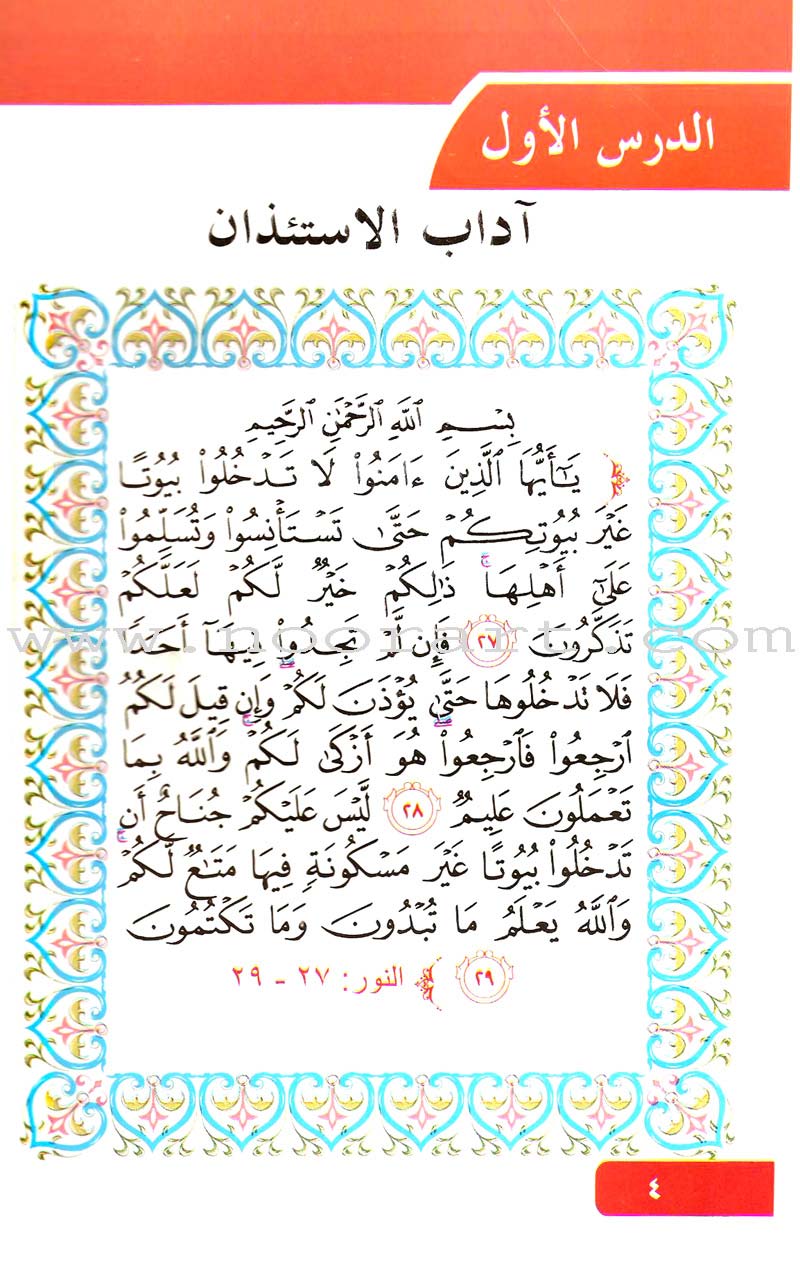 الدرس الأول
آداب الاستئذان
بِسْمِ ٱللَّهِ ٱلرَّحْمَٰنِ ٱلرَّحِيمِ
﴿ يَٰٓأَيُّهَا ٱلَّذِينَ ءَامَنُوا۟ لَا تَدْخُلُوا۟ بُيُوتًا
غَيْرَ بُيُوتِكُمْ حَتَّىٰ تَسْتَأْنِسُوا۟ وَتُسَلِّمُوا۟
عَلَىٰٓ أَهْلِهَا ۚ ذَٰلِكُمْ خَيْرٌ لَّكُمْ لَعَلَّكُمْ
تَذَكَّرُونَ ٢٧ فَإِن لَّمْ تَجِدُوا۟ فِيهَآ أَحَدًا
فَلَا تَدْخُلُوهَا حَتَّىٰ يُؤْذَنَ لَكُمْ وَإِن قِيلَ لَكُمُ
ٱرْجِعُوا۟ فَٱرْجِعُوا۟ هُوَ أَزْكَىٰ لَكُمْ وَٱللَّهُ بِمَا
تَعْمَلُونَ عَلِيمٌ ٢٨ لَّيْسَ عَلَيْكُمْ جُنَاحٌ أَن
تَدْخُلُوا۟ بُيُوتًا غَيْرَ مَسْكُونَةٍ فِيهَا مَتَٰعٌ لَّكُمْ
وَٱللَّهُ يَعْلَمُ مَا تُبْدُونَ وَمَا تَكْتُمُونَ
٢٩ ﴾ النور: ٢٧ - ٢٩
www.noorart.com
٤